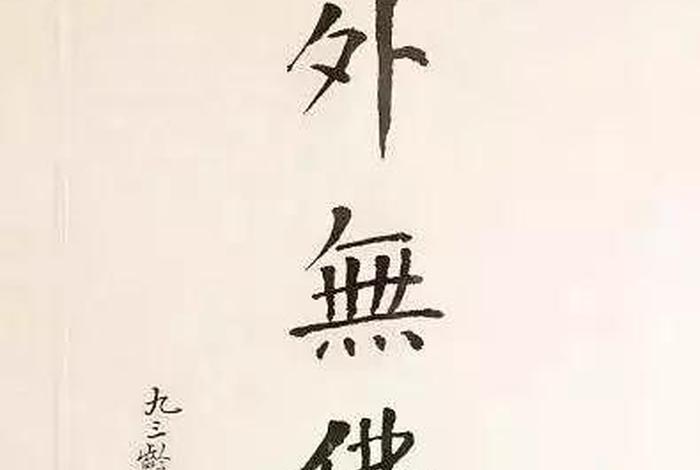 外無佛
九三齡